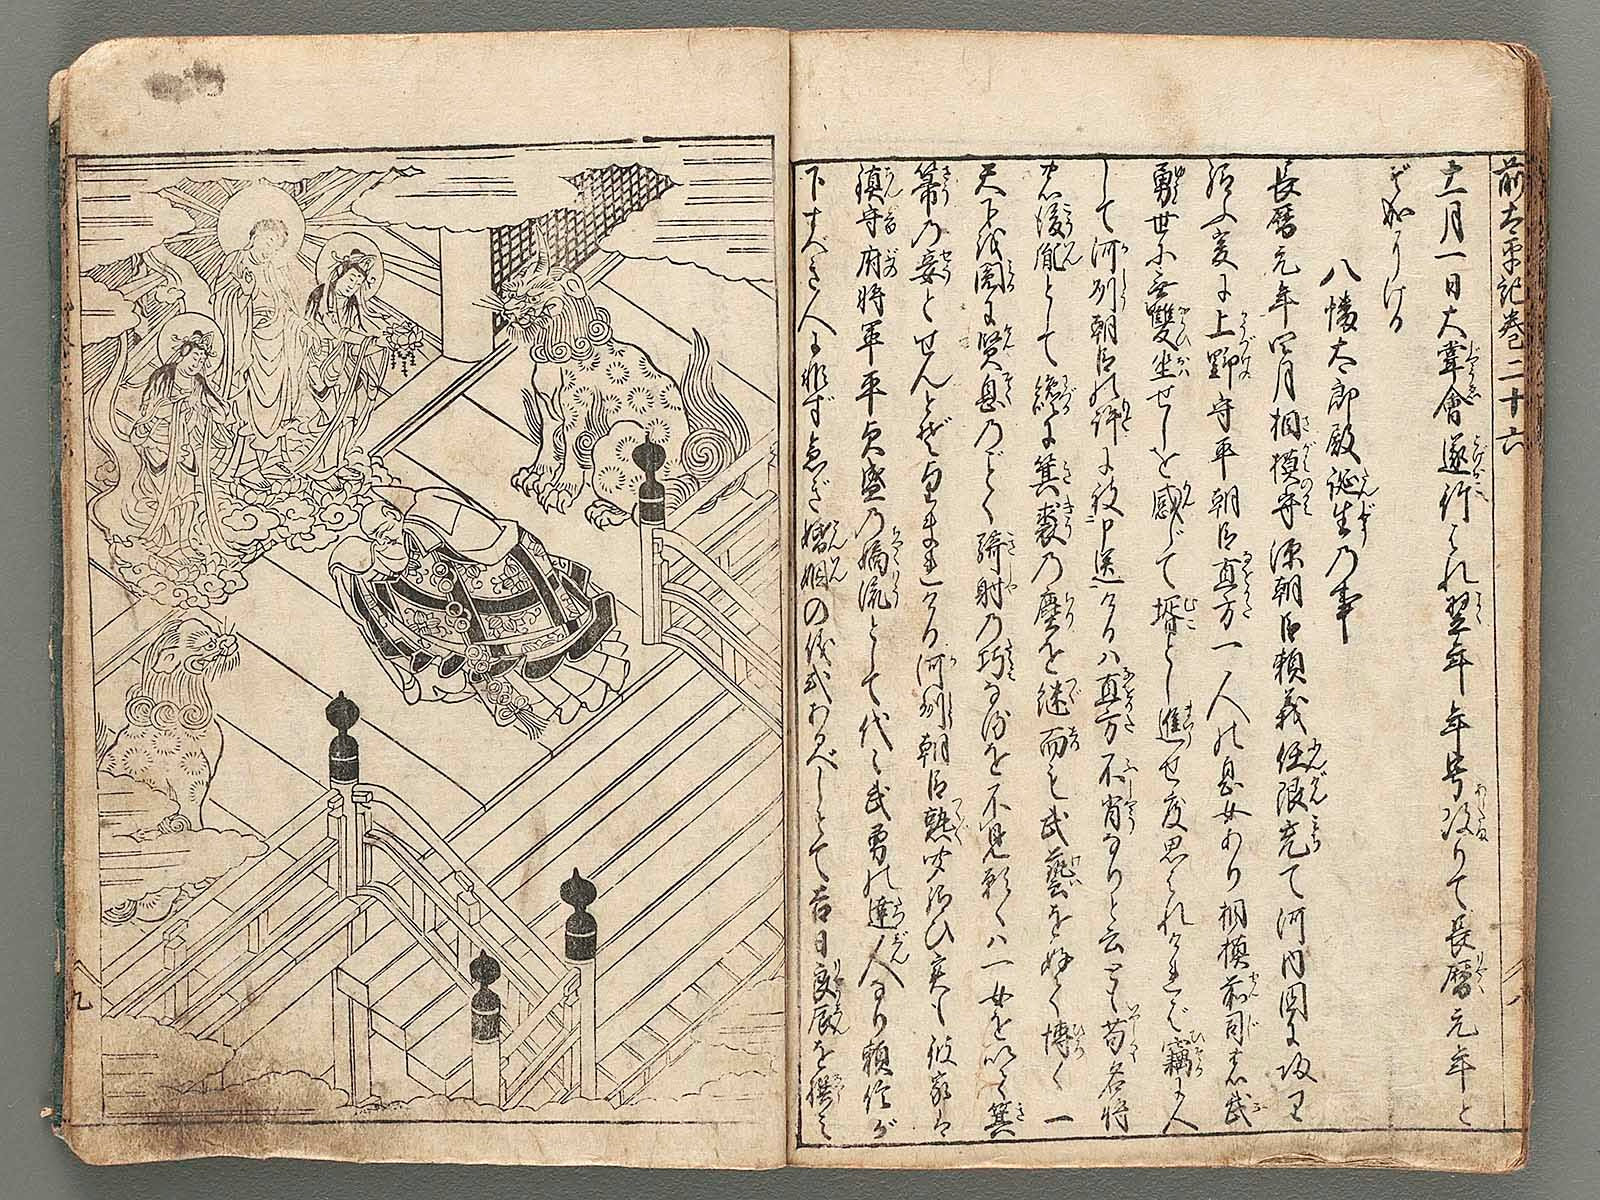 前太平記巻二十六
十一月一日大嘗會遂行はれ翌年年号改りて長暦元年と
ぞ成りける
八幡太郎殿誕生乃事
長暦元年四月相模守源朝臣頼義任限充て河内国に改
上野守平朝臣直方一人の息女あり相模前司
勇世に無雙坐せしを感じて壻とし進せ度思はれければ竊に人
して河州朝臣の許は被申送ける八直方不肖なりと云とも苟名将
後胤として纔に箕裘乃塵を継而も武藝を好て博く一
天下後園に賢息乃ごとく騎射乃巧なるを不見願くハ一女を以て箕
箒乃妾とせんとぞける河州朝臣熟聞給ひ実も彼家は
鎮守府将軍平貞盛乃嫡流として代々武勇の達人なり頼信が
下すべき人に非ず急ぎ婚姻の儀式あるべしとて吉日良辰を撰み
八
九